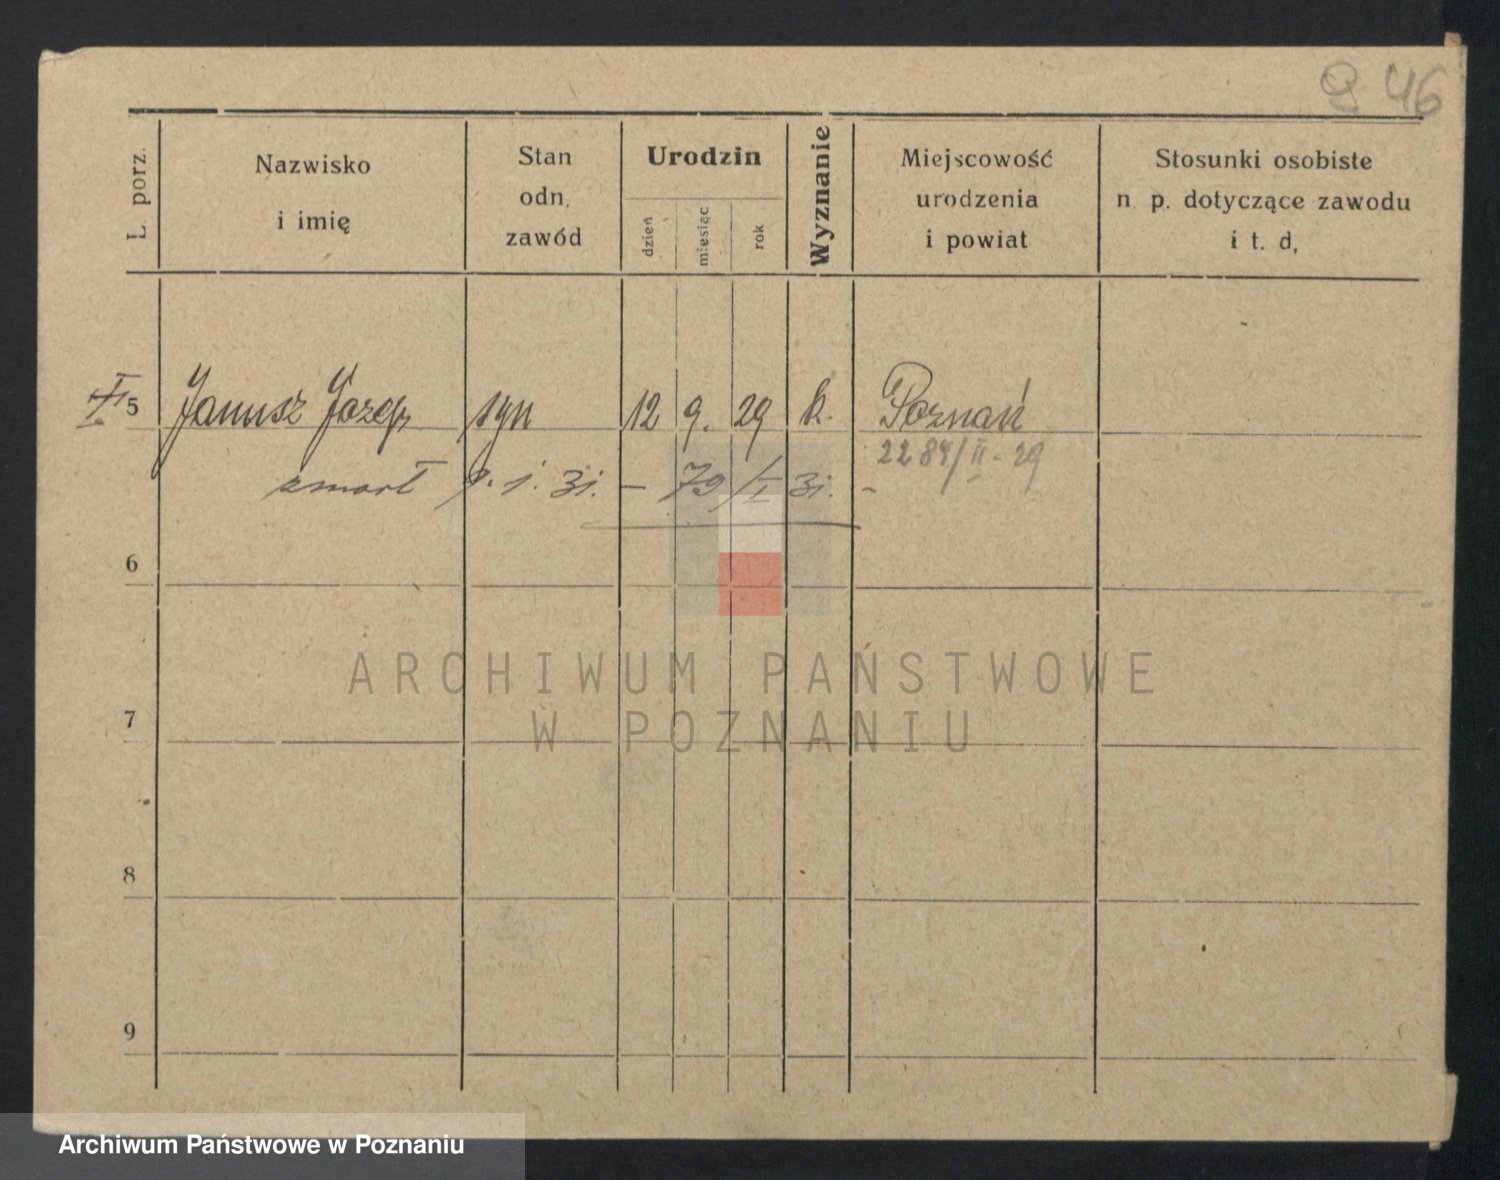 946
L. porz.
Nazwisko
i imię
Stan
odn.
zawód
Urodzin
dzień
miesiąc
rok
Wyznanie
Miejscowość
urodzenia
i powiat
Stosunki osobiste
n p. dotyczące zawodu
i t. d,
5 Janusz Józef syn 12 9. 29 k. Poznań
2284/II-29
zmarł 9. 1. 31. — 79/I 31. -
6
ARCHIWUM PAŃSTWOWE
W POZNANIU
7
8
9
Archiwum Państwowe w Poznaniu